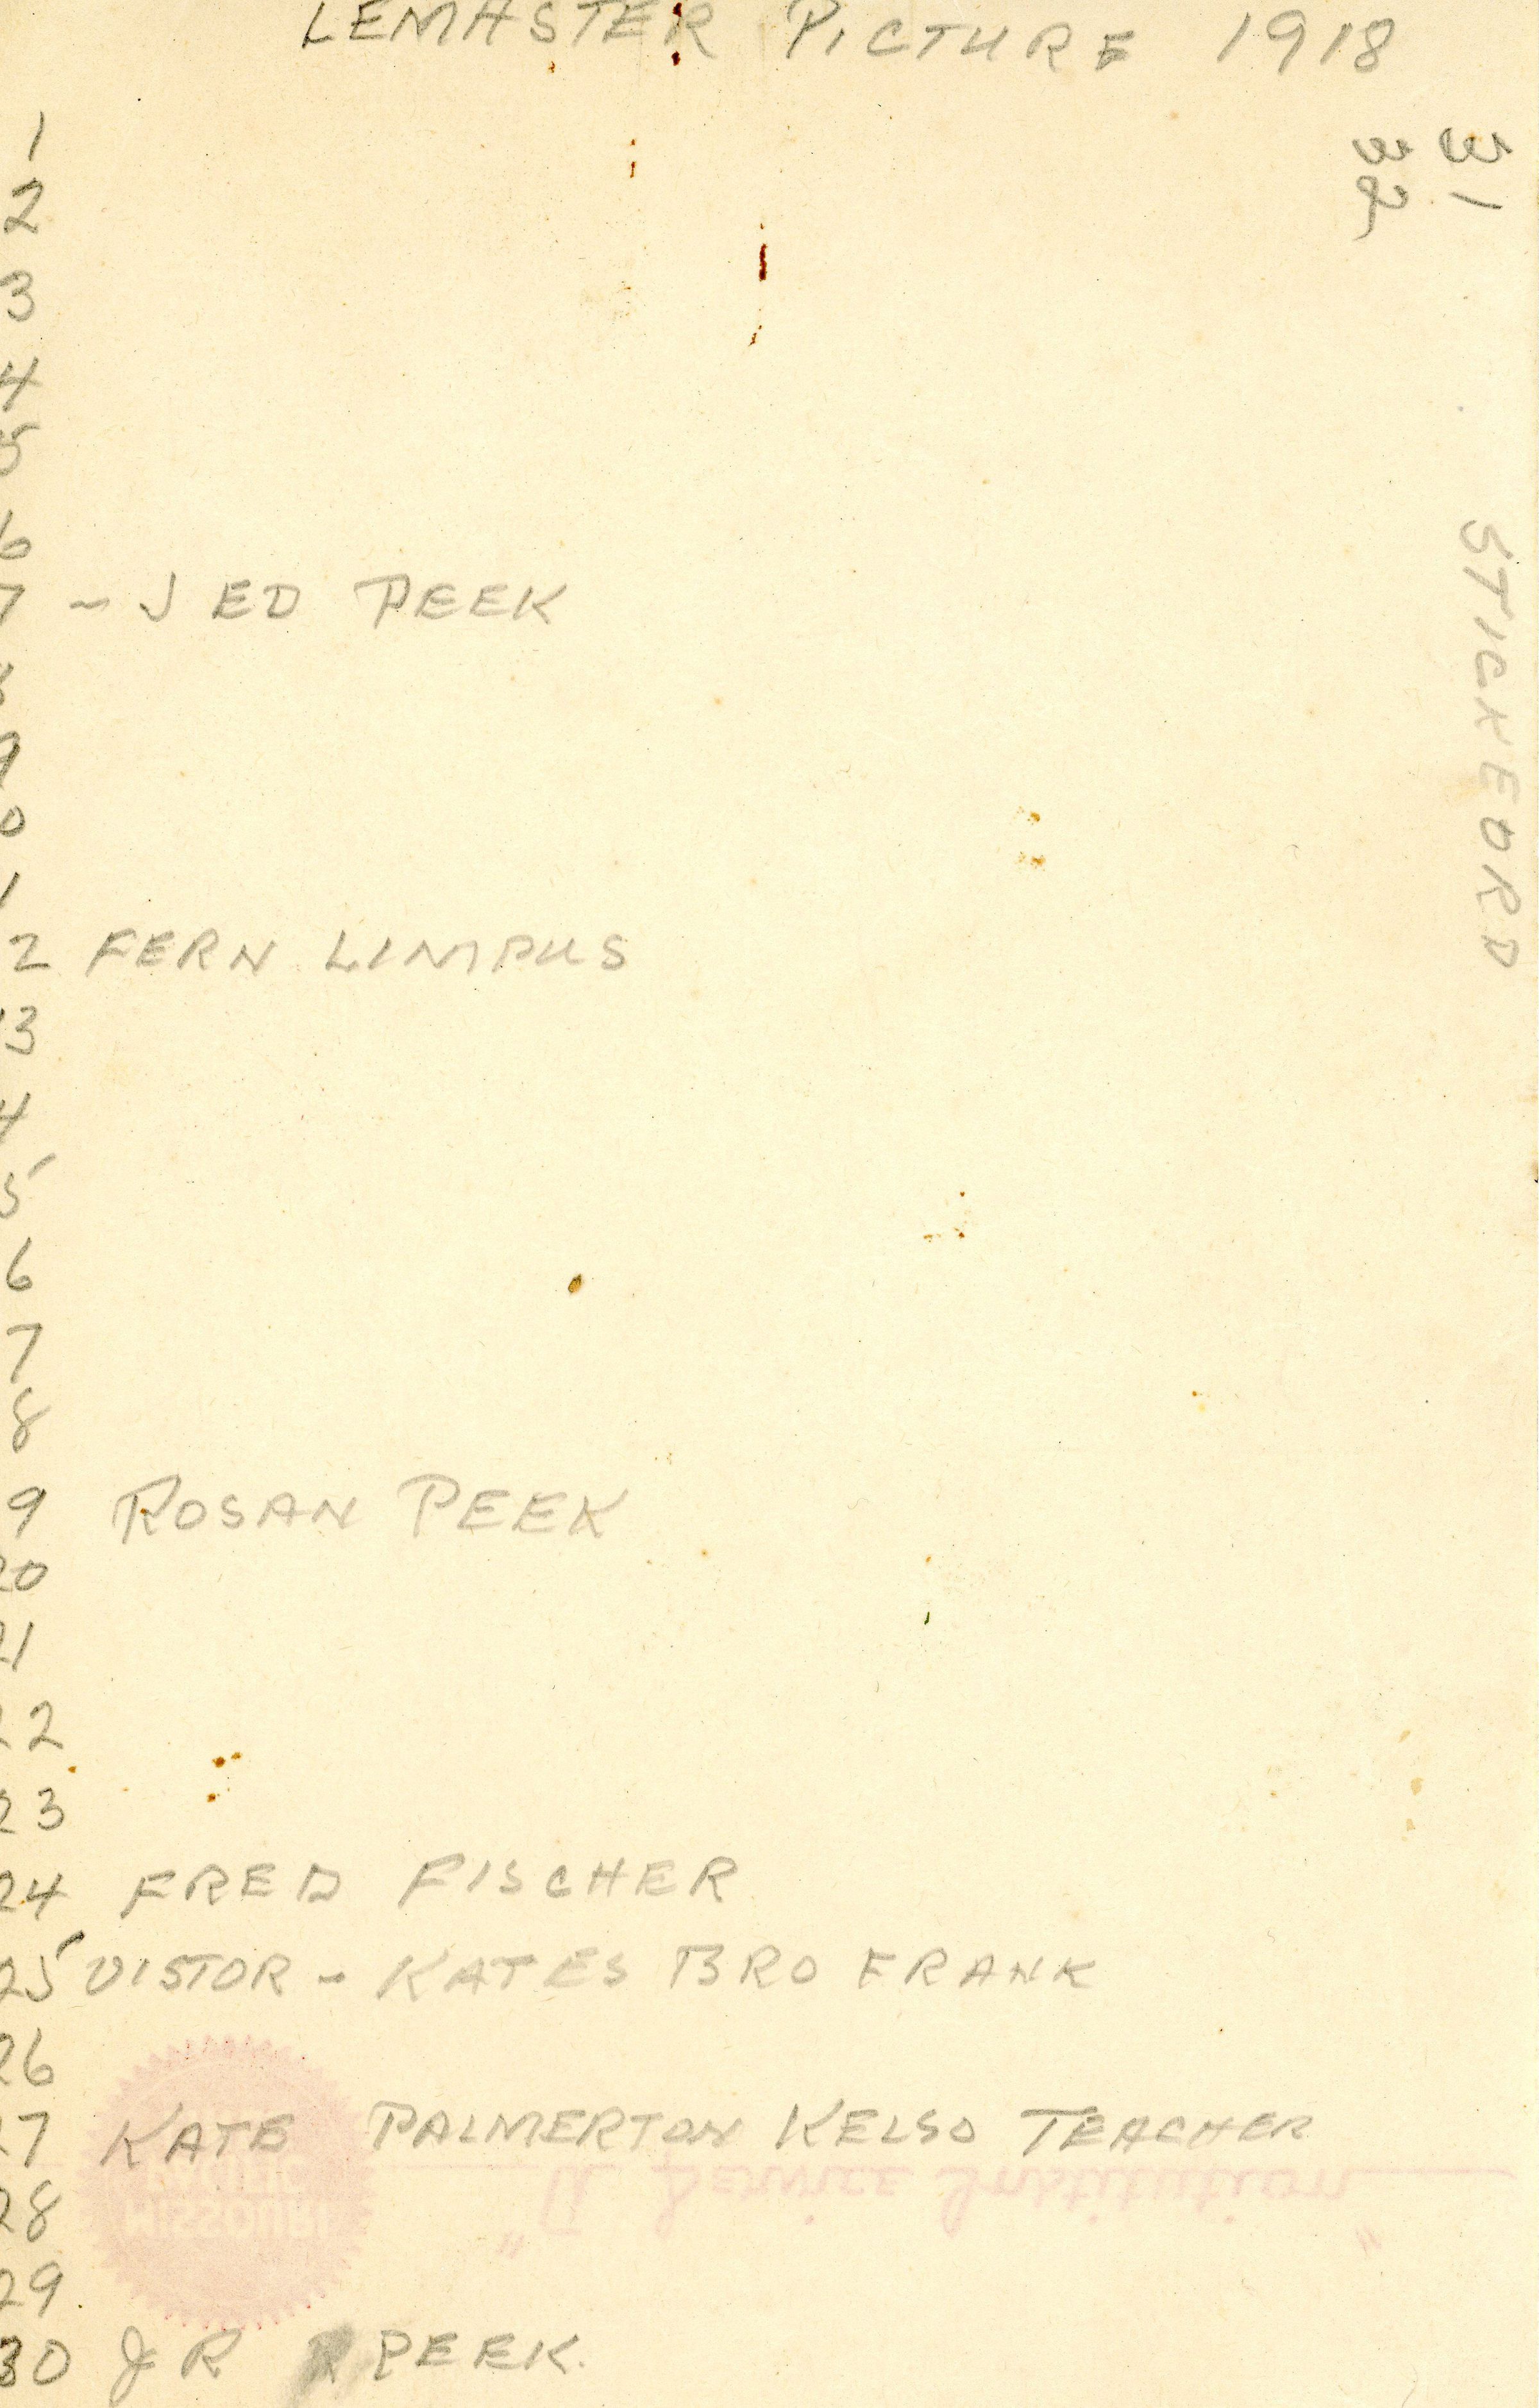 LEMASTER PICTURE 1918
1
2
3
4
5
6
7 - JED PEEK
8
9
0
1
2 FERN LIMPUS
13
4
5
6
7
8
9 ROSAN PEEK
20
21
22
23
24 FRED FISCHER
25 VISTOR - KATES BRO FRANK
26
27 KATE PALMERTON KELSO TEACHER
28
29
30 JR PEEK.
31
32
"A Service Institution"
MISSOURI